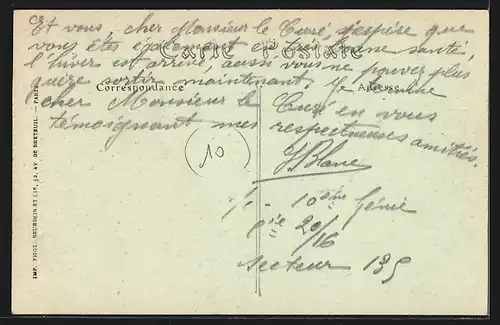 Et vous, cher Monsieur le Curé, j'espère que
vous êtes également en très bonne santé,
CARTE POSTALE
l'hiver est arrivé, aussi vous ne pouvez plus
guère sortir maintenant. Je termine
Correspondance
cher Monsieur le Curé en vous
témoignant mes respectueuses amitiés.
10
Blanc
10ème Génie
Cie 20/16
secteur 139
IMP. PHOT. NEURDEIN ET CIE, 52, AV. DE BRETEUIL. - PARIS